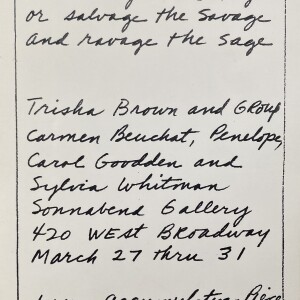 or salvage the Savage
and ravage the Sage
Trisha Brown and GROUP
Carmen Beuchat, Penelope,
Carol Goodden and
Sylvia Whitman
Sonnabend Gallery
420 WEST BROADWAY
March 27 thru 31